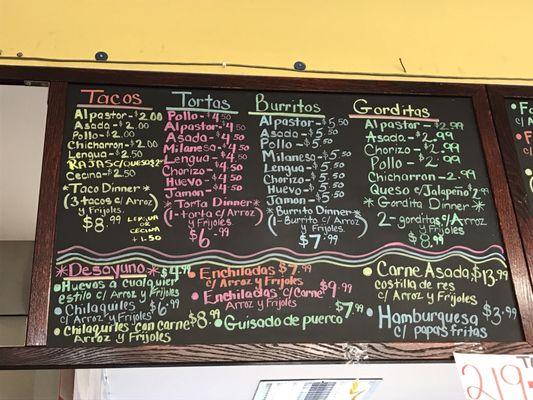 Tacos
Al pastor-$2.00
Asada-$2.00
Pollo-$2.00
Chicharron-$2.00
Lengua-$2.50
RAJAS c/QUESO $2
Cecina-$2.50
*Taco Dinner*
(3 tacos c/Arroz
y Frijoles)
$8.99
LENGUA
OR
CECINA
+1.50
Tortas
Pollo-$4.50
Al pastor-$4.50
Asada-$4.50
Milanesa-$4.50
Lengua-$4.50
Chorizo-$4.50
Huevo-$4.50
Jamon-$4.50
*Torta Dinner*
(1-torta c/Arroz
y Frijoles)
$6.99
Burritos
Al pastor-$5.50
Asada-$5.50
Pollo-$5.50
Milanesa-$5.50
Lengua-$5.50
Chorizo-$5.50
Huevo-$5.50
Jamon-$5.50
*Burrito Dinner*
(1-Burrito c/Arroz
y Frijoles)
$7.99
Gorditas
Al pastor-$2.99
Asada-$2.99
Chorizo-$2.99
Pollo-$2.99
Chicharron-2.99
Queso c/Jalapeño $2.99
*Gordita Dinner*
2-gorditas c/Arroz
y Frijoles
$8.99
*Desayuno* $4.99
Huevos a cualquier
estilo c/Arroz y Frijoles
Chilaquiles $6.99
c/Arroz y Frijoles
Chilaquiles con carne $8.99
c/Arroz y Frijoles
Enchiladas $7.99
c/Arroz y Frijoles
Enchiladas c/Carne $9.99
Arroz y Frijoles
Guisado de puerco $7.99
Carne Asada $13.99
costilla de res
c/Arroz y Frijoles
Hamburguesa $3.99
c/ papas fritas
219-